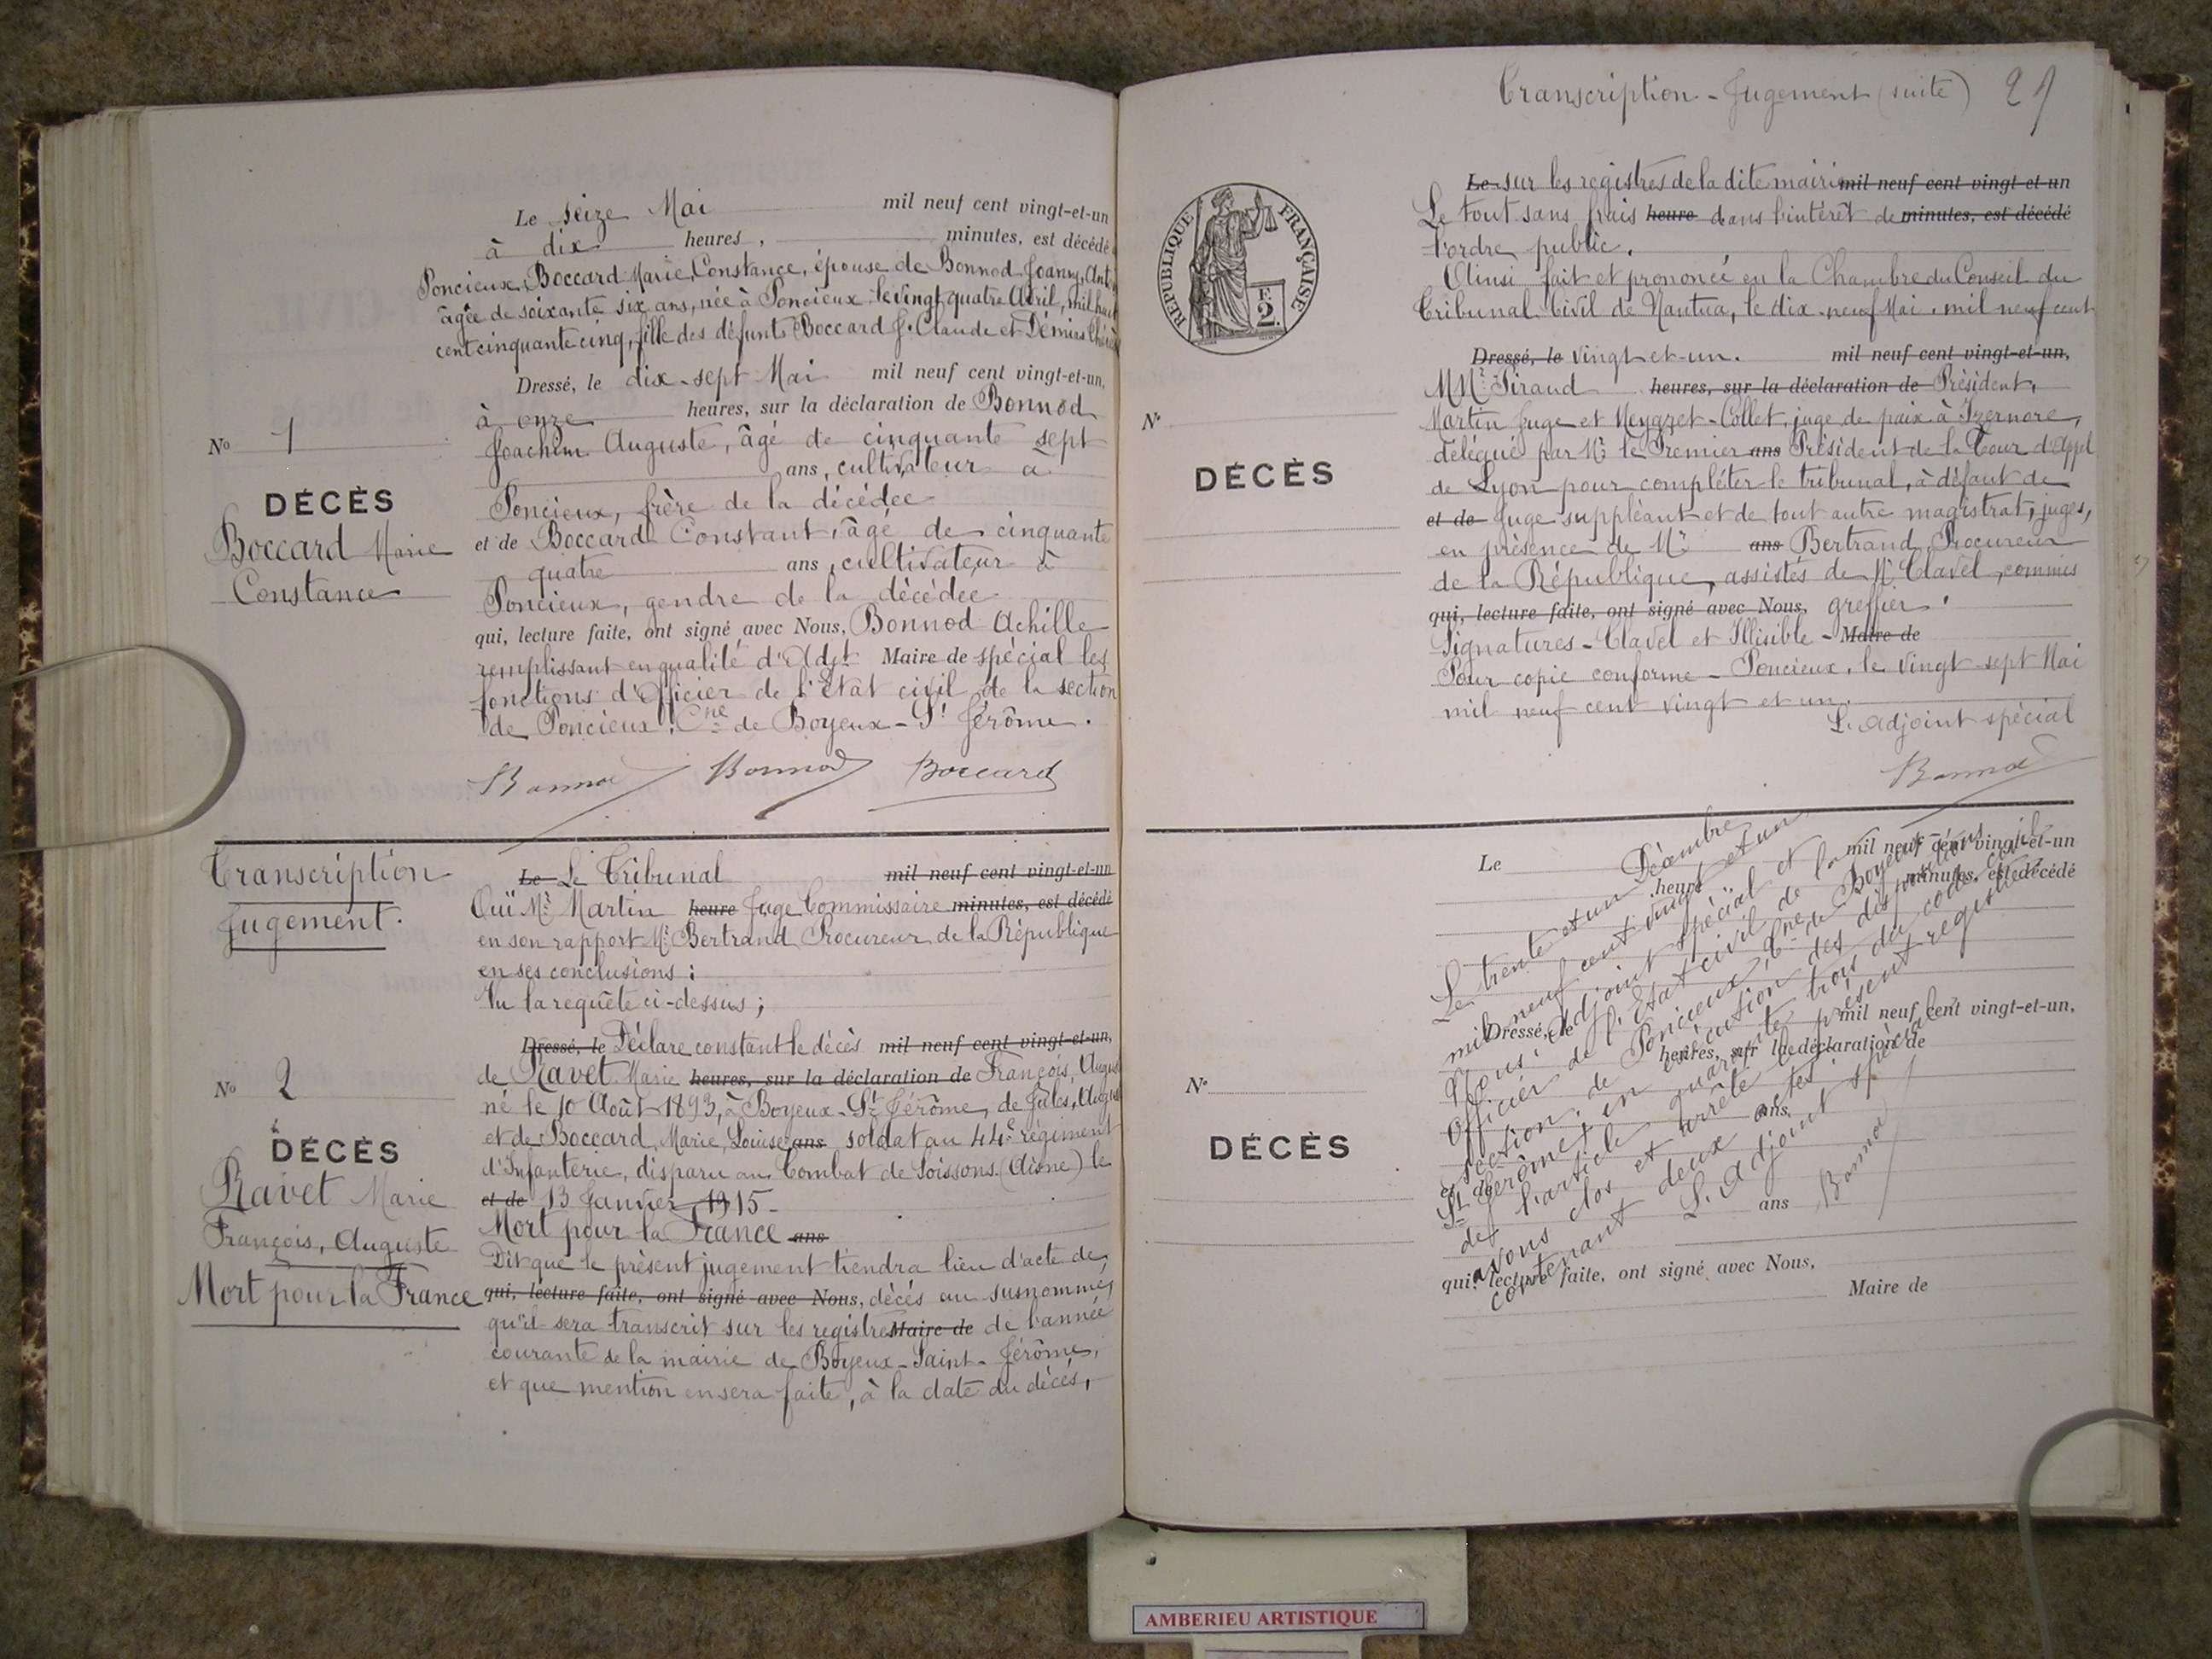 Le seize Mai mil neuf cent vingt-et-un
à dix heures, minutes, est décédé
Poncieux, Boccard Marie, Constance, épouse de Bonnod Joanny, Ant
âgée de soixante six ans, née à Poncieux le vingt quatre Avril, mil huit
cent cinquante cinq, fille des défunts Boccard J. Claude et Démias
Dressé, le dix-sept Mai mil neuf cent vingt-et-un,
à onze heures, sur la déclaration de Bonnod
Joachim Auguste, âgé de cinquante sept
ans, cultivateur à
Poncieux, frère de la décédée
et de Boccard Constant, âgé de cinquante
quatre ans, cultivateur à
Poncieux, gendre de la décédée
qui, lecture faite, ont signé avec Nous, Bonnod Achille
remplissant en qualité d'Adjt Maire de spécial les
fonctions d'Officier de l'Etat civil de la section
de Poncieux, Cne de Boyeux-St Jérôme.
Bonnod Bonnod Boccard
No 1
DÉCÈS
Boccard Marie
Constance
Transcription
Jugement.
No 2
DÉCÈS
Ravet Marie
François, Auguste
Mort pour la France
Le Le Tribunal mil neuf cent vingt-et-un
Ouï Mr Martin heure Juge Commissaire minutes, est décédé
en son rapport Mr Bertrand Procureur de la République
en ses conclusions :
Vu la requête ci-dessus ;
Dressé, le Déclare constant le décès mil neuf cent vingt-et-un,
de Ravet Marie heures, sur la déclaration de François, August
né le 10 Août 1893, à Boyeux-St Jérôme, de Jules, August
et de Boccard, Marie, Louise, ans soldat au 44e régiment
d'Infanterie, disparu au Combat de Soissons (Aisne) le
et de 13 Janvier 1915 -
Mort pour la France ans
Dit que le présent jugement tiendra lieu d'acte de
qui, lecture faite, ont signé avec Nous, décès au susnommé,
qu'il sera transcrit sur les registres Maire de de l'année
courante de la mairie de Boyeux-Saint-Jérôme,
et que mention en sera faite, à la date du décès,
Transcription - Jugement (suite) 29
RÉPUBLIQUE FRANÇAISE
F.
2.
Le sur les registres de la dite mairie mil neuf cent vingt-et-un
Le tout sans frais heure dans l'intérêt de minutes, est décédé
l'ordre public.
Ainsi fait et prononcé en la Chambre du Conseil du
Tribunal Civil de Nantua, le dix-neuf Mai, mil neuf cent
Dressé, le vingt-et-un. mil neuf cent vingt-et-un,
MMrs Siraud heures, sur la déclaration de Président,
Martin Juge et Meygret-Collet, juge de paix à Izernore,
délégué par Mr le Premier ans Président de la Cour d'Appel
de Lyon pour compléter le tribunal, à défaut de
et de Juge suppléant et de tout autre magistrat, juges,
en présence de Mr ans Bertrand Procureur
de la République, assistés de Mr Clavel, commis
qui, lecture faite, ont signé avec Nous, greffier.
Signatures - Clavel et Illisible - Maire de
Pour copie conforme - Poncieux, le vingt-sept Mai
mil neuf cent vingt et un.
L'adjoint spécial
Bonnod
No
DÉCÈS
Le mil neuf cent vingt-et-un
heure minutes, est décédé
Dressé, le mil neuf cent vingt-et-un,
heures, sur la déclaration de
ans,
et de
ans
qui, lecture faite, ont signé avec Nous,
Maire de
No
DÉCÈS
Le trente et un Décembre
mil neuf cent vingt et un
Nous, adjoint spécial et
Officier de l'Etat civil de la
section de Poncieux, Cne de Boyeux
St Jérôme, en exécution des dispositions
de l'article quarante trois du code civil
avons clos et arrêté le présent registre
contenant deux actes.
L'Adjoint spécial
Bonnod
AMBERIEU ARTISTIQUE